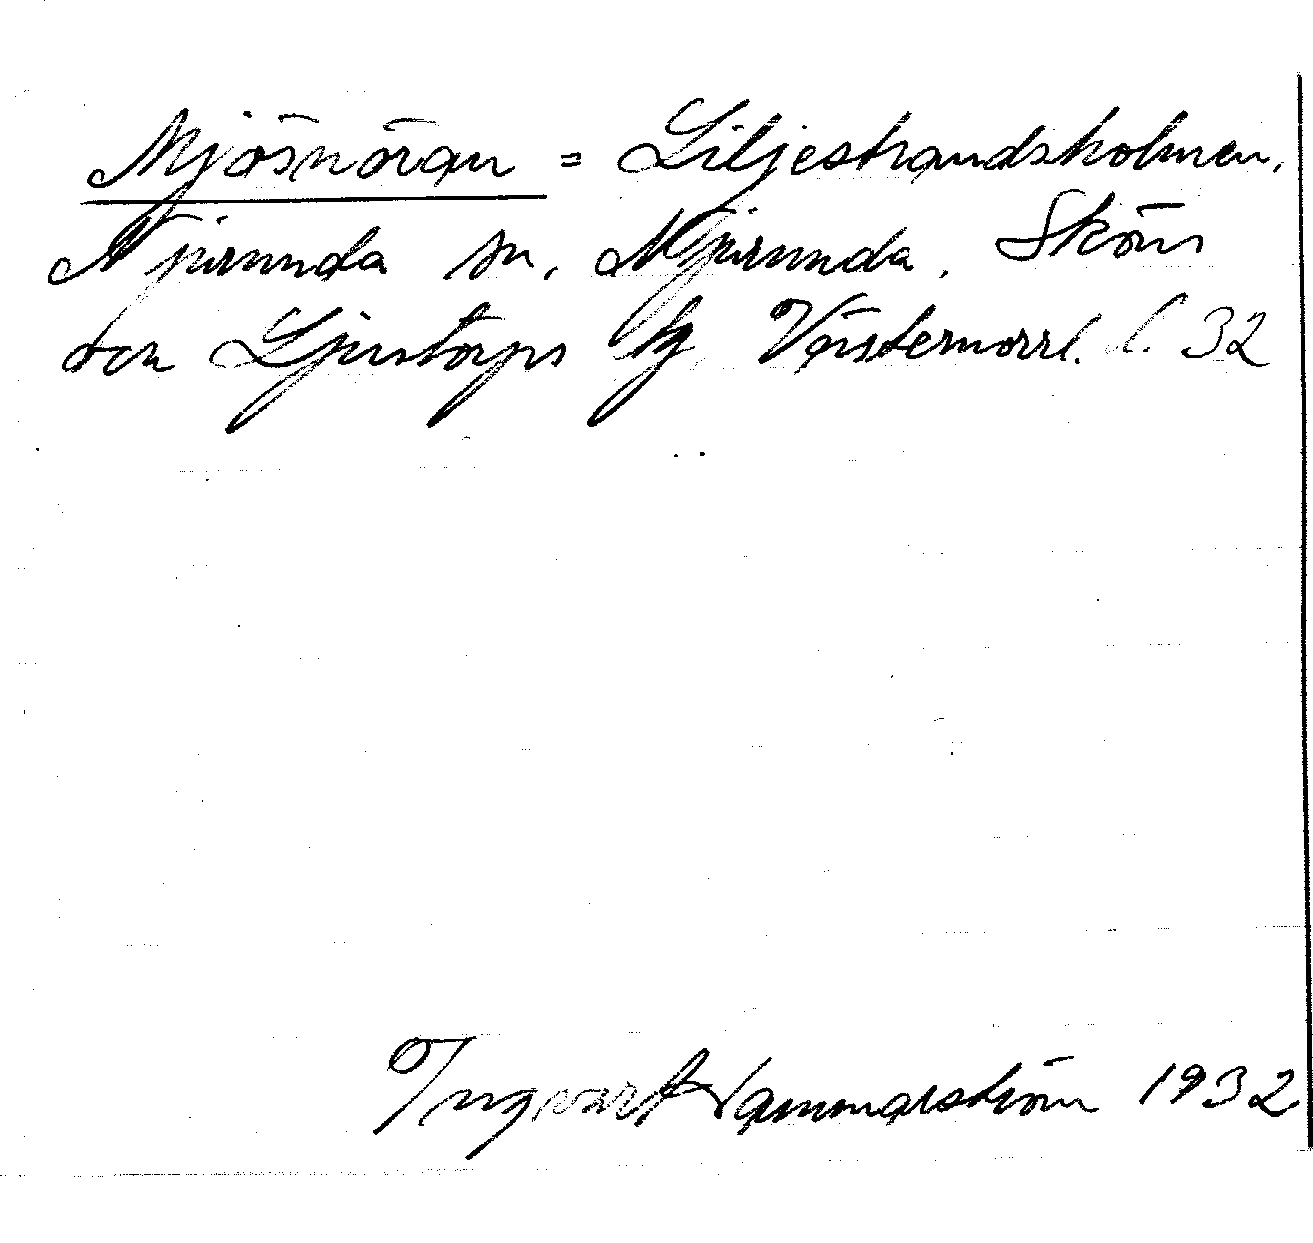 Mjösnöran = Liljestrandsholmen,
Njurunda sn, Njurunda, Sköns
och Ljustorps hg Västernorrl. l. 32
Ingvart Hammarström 1932